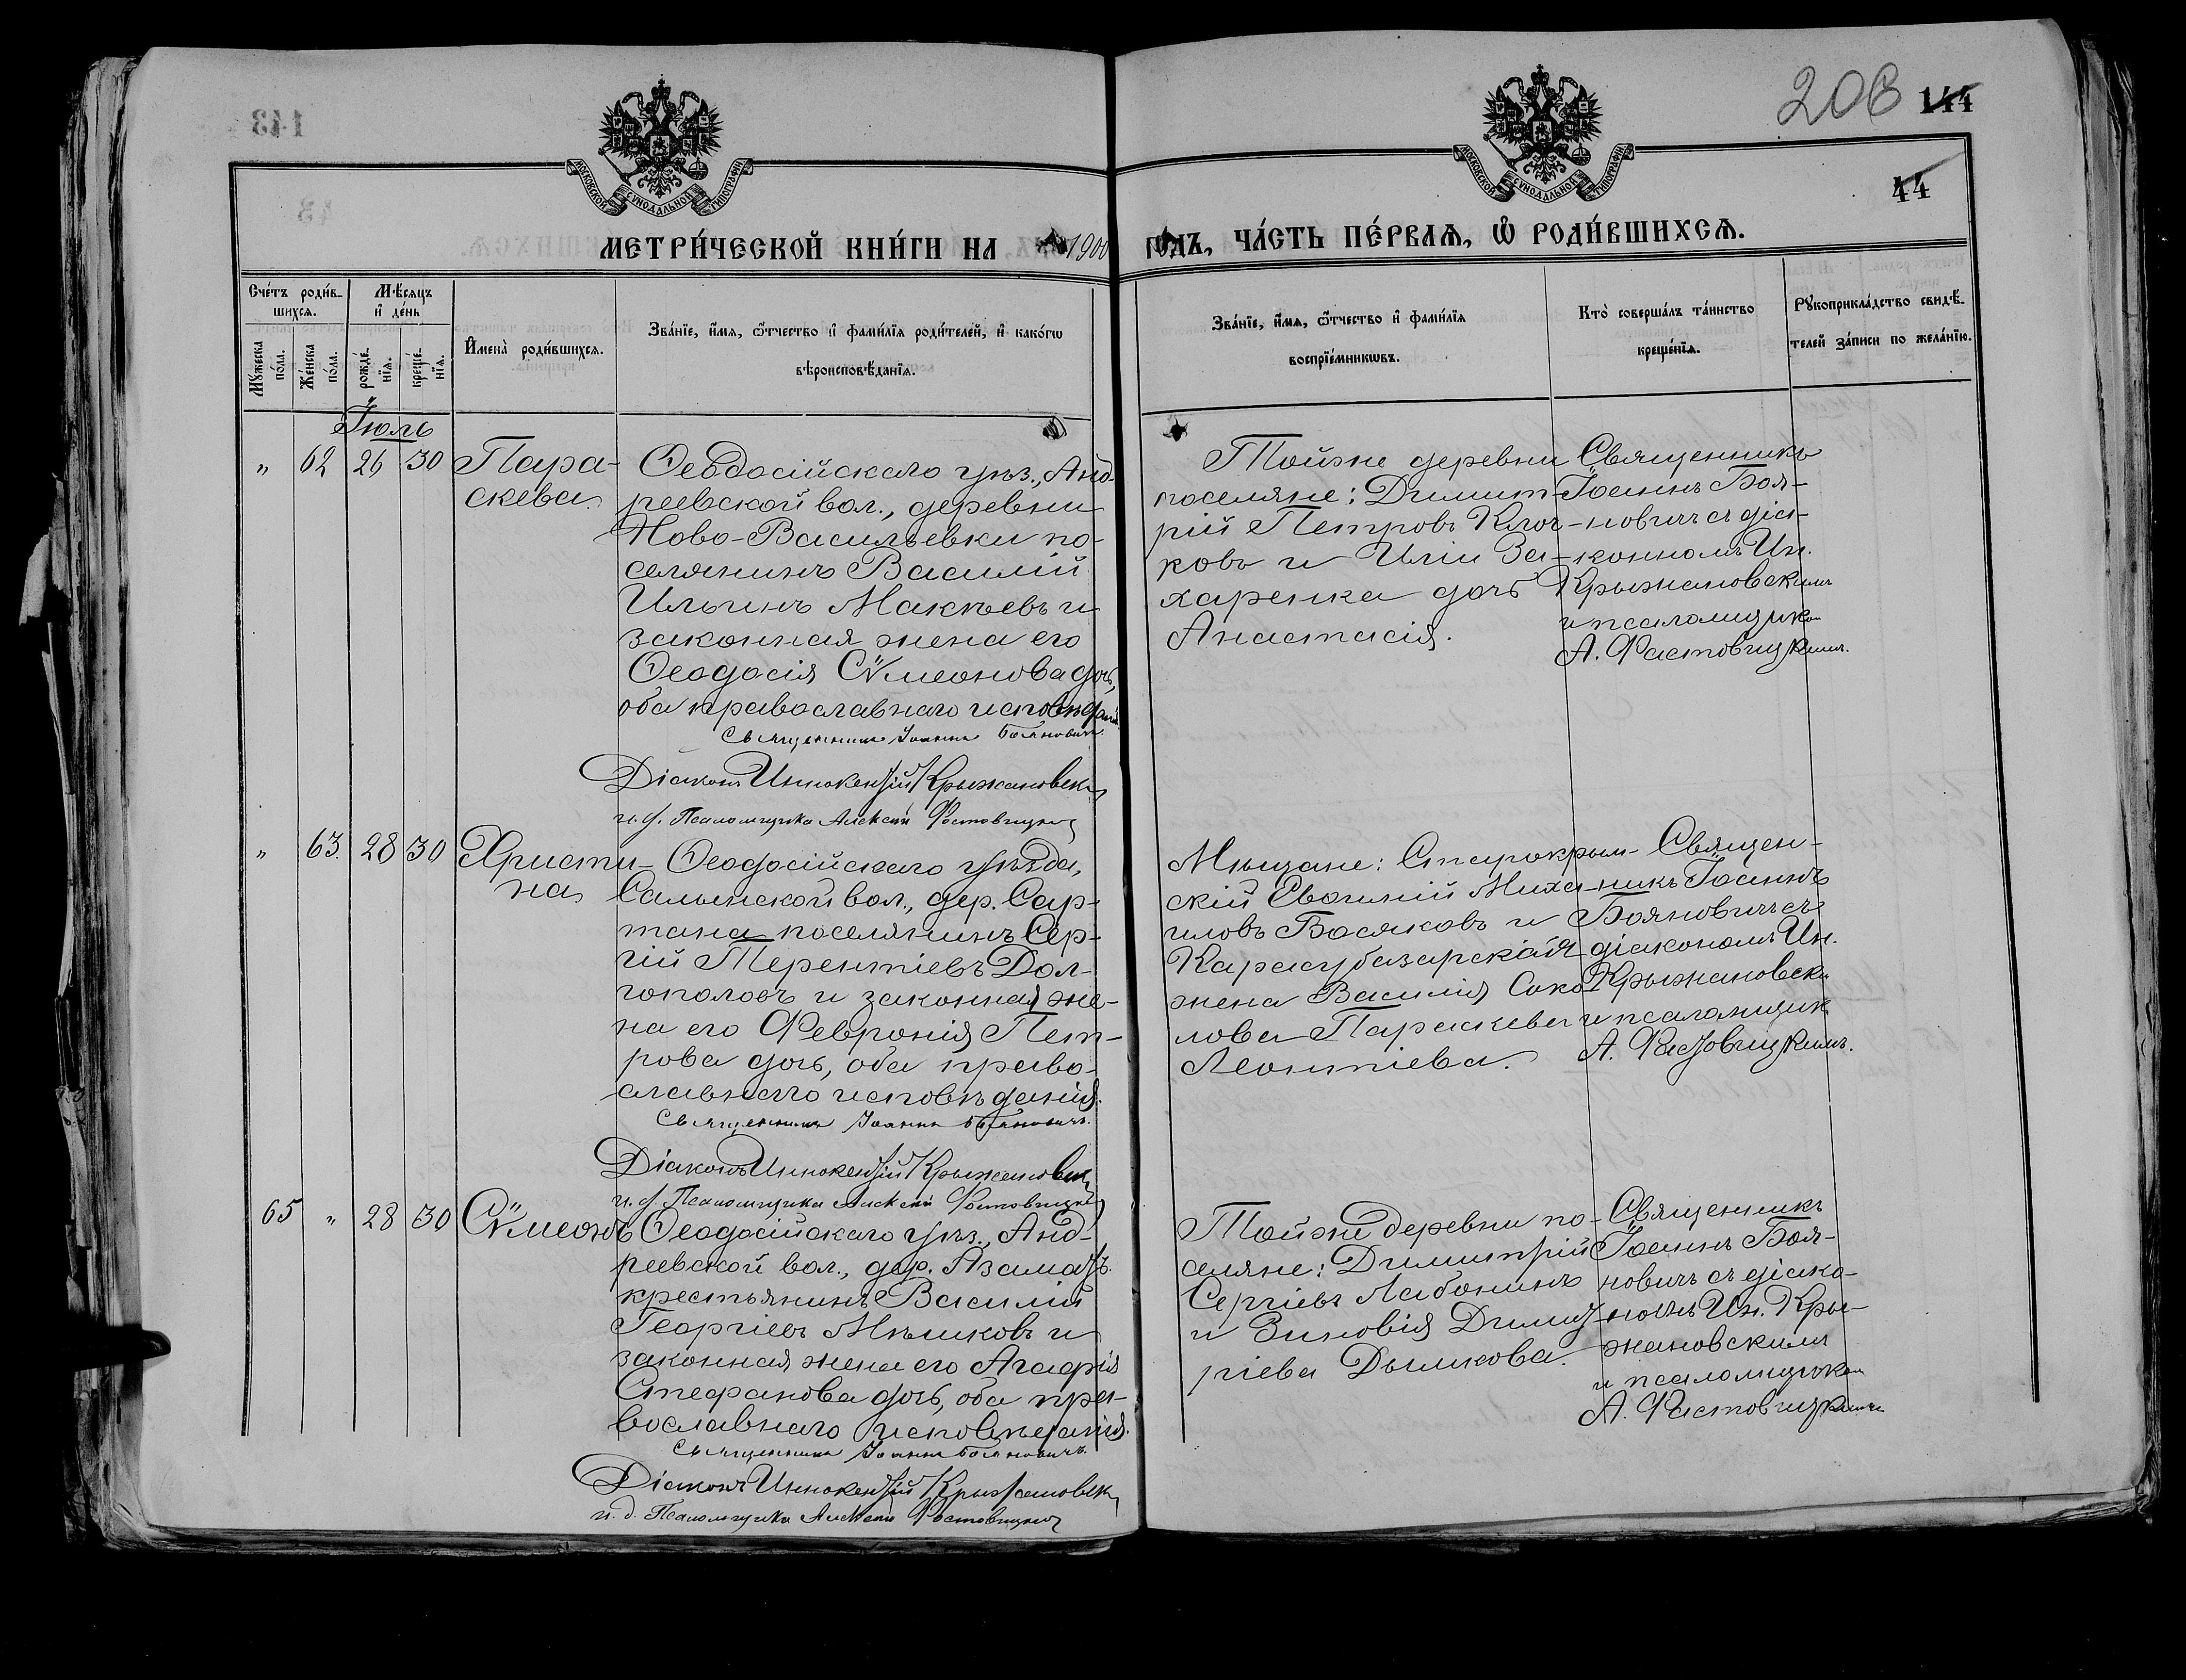 206 144
44
МОСКОВСКОЙ СѴНОДАЛЬНОЙ ТИПОГРАФІИ
МОСКОВСКОЙ СѴНОДАЛЬНОЙ ТИПОГРАФІИ
МЕТРИ́ЧЕСКОЙ КНИ́ГИ НА 1900 ГОДЪ, ЧА́СТЬ ПЕ́РВАѦ, Ѡ҆ РОДИ́ВШИХСѦ.
Сче́тъ роди́в-
шихсѧ.
Мѣ́сѧцъ
и҆ де́нь
Мꙋ́жеска
по́ла.
Же́нска
по́ла.
рожде́-
нїѧ.
креще́-
нїѧ.
И҆мена̀ роди́вшихсѧ.
Зва́нїе, и҆́мѧ, ѻ҆́тчество и҆ фами́лїѧ роди́телей, и҆ како́гѡ
вѣроисповѣ́данїѧ.
Зва́нїе, и҆́мѧ, ѻ҆́тчество и҆ фами́лїѧ
воспрїе́мникѡвъ.
Кто̀ соверша́лъ та́инство
креще́нїѧ.
Рꙋкоприкла́дство свидѣ́-
телей за́писи по жела́нїю.
Іюль
" 62 26 30 Пара-
скева.
Ѳеодосійскаго уѣз., Анд-
реевской вол., деревни
Ново-Васильевки по-
селянинъ Василій
Ильинъ Макѣевъ и
законная жена его
Ѳеодосія Сѵмеонова дочь,
оба православнаго исповѣданія
Священникъ Іоаннъ Бояновичъ.
Діаконъ Иннокентій Крыжановскій
и. д. Псаломщика Алексѣй Фастовицкій
Тойже деревни
поселяне: Димит-
рій Петровъ Клоч-
ковъ и Иліи За-
харенка дочь
Анастасія.
Священникъ
Іоаннъ Боя-
новичъ съ діа-
кономъ Ин.
Крыжановскимъ
и псаломщиком
А. Фастовицкимъ.
" 63. 28 30 Христи-
на
Ѳеодосійскаго уѣзда,
Салынской вол., дер. Сар-
тана поселянинъ Сер-
гій Терентіевъ Дол-
гополовъ и законная же-
на его Февронія Пет-
рова дочь, оба право-
славнаго исповѣданія.
Священникъ Іоаннъ Бояновичъ.
Діаконъ Иннокентій Крыжановскій
и. д. Псаломщика Алексѣй Фастовицкій
Мѣщане: Старокрым-
скій Евѳимій Миха-
иловъ Босяковъ и
Карасубазарская
жена Василія Соко-
лова Параскева
Леонтіева.
Священ-
никъ Іоаннъ
Бояновичъ съ
діакономъ Ин.
Крыжановски
и псаломщик
А. Фастовицкимъ.
65 " 28 30 Сѵмеонъ
Ѳеодосійскаго уѣз., Анд-
реевской вол., дер. Азаматъ.
крестьянинъ Василій
Георгіевъ Мѣшковъ и
законная жена его Агафія
Стефанова дочь, оба пра-
вославнаго исповѣданія.
Священникъ Іоаннъ Бояновичъ.
Діаконъ Иннокентій Крыжановскій
и. д. Псаломщика Алексѣй Фастовицкій
Тойже деревни по-
селяне: Димитрій
Сергіевъ Лабонинъ
и Зиновія Димит-
ріева Дымкова.
Священникъ
Іоаннъ Боя-
новичъ съ діако-
номъ Ин. Кры-
жановскимъ
и псаломщиком
А. Фастовицкимъ